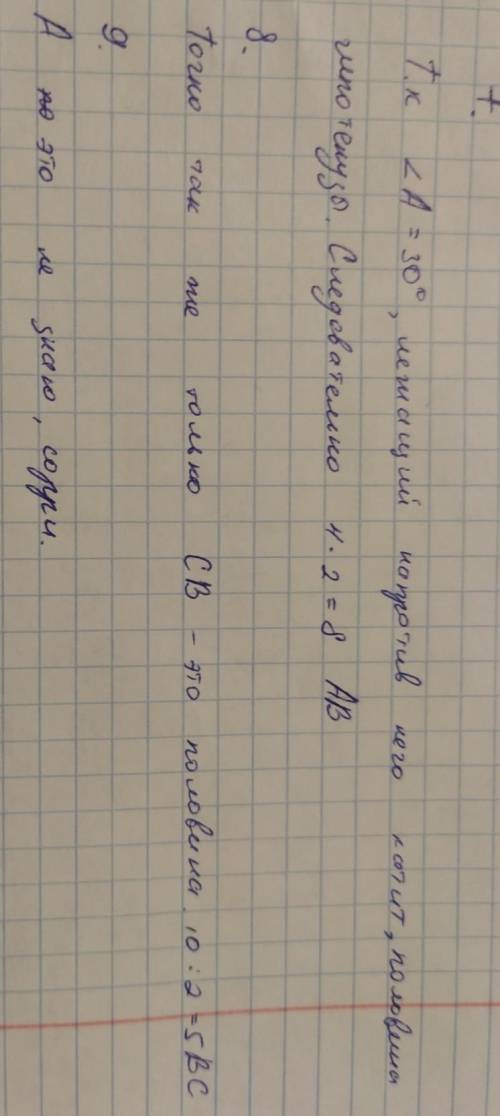 7.
Т.к ∠A = 30°, лежащий напротив него катит, половина
гипотенузы. Следовательно 4·2=8 AB
8.
Точно так же только CB - это половина. 10:2=5 BC
9.
А это не знаю, сорри.